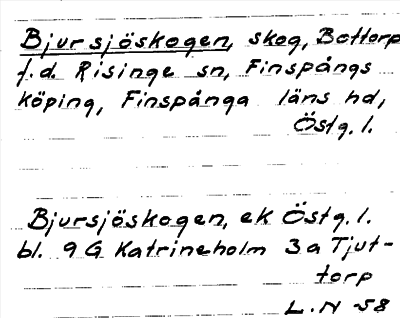 Bjursjöskogen, skog, Bottorp
f.d. Risinge sn, Finspångs
köping, Finspånga läns hd,
Östg. l.
Bjursjöskogen, ek Östg. l.
bl. 9 G Katrineholm 3 a Tjut-
torp
L. N -58